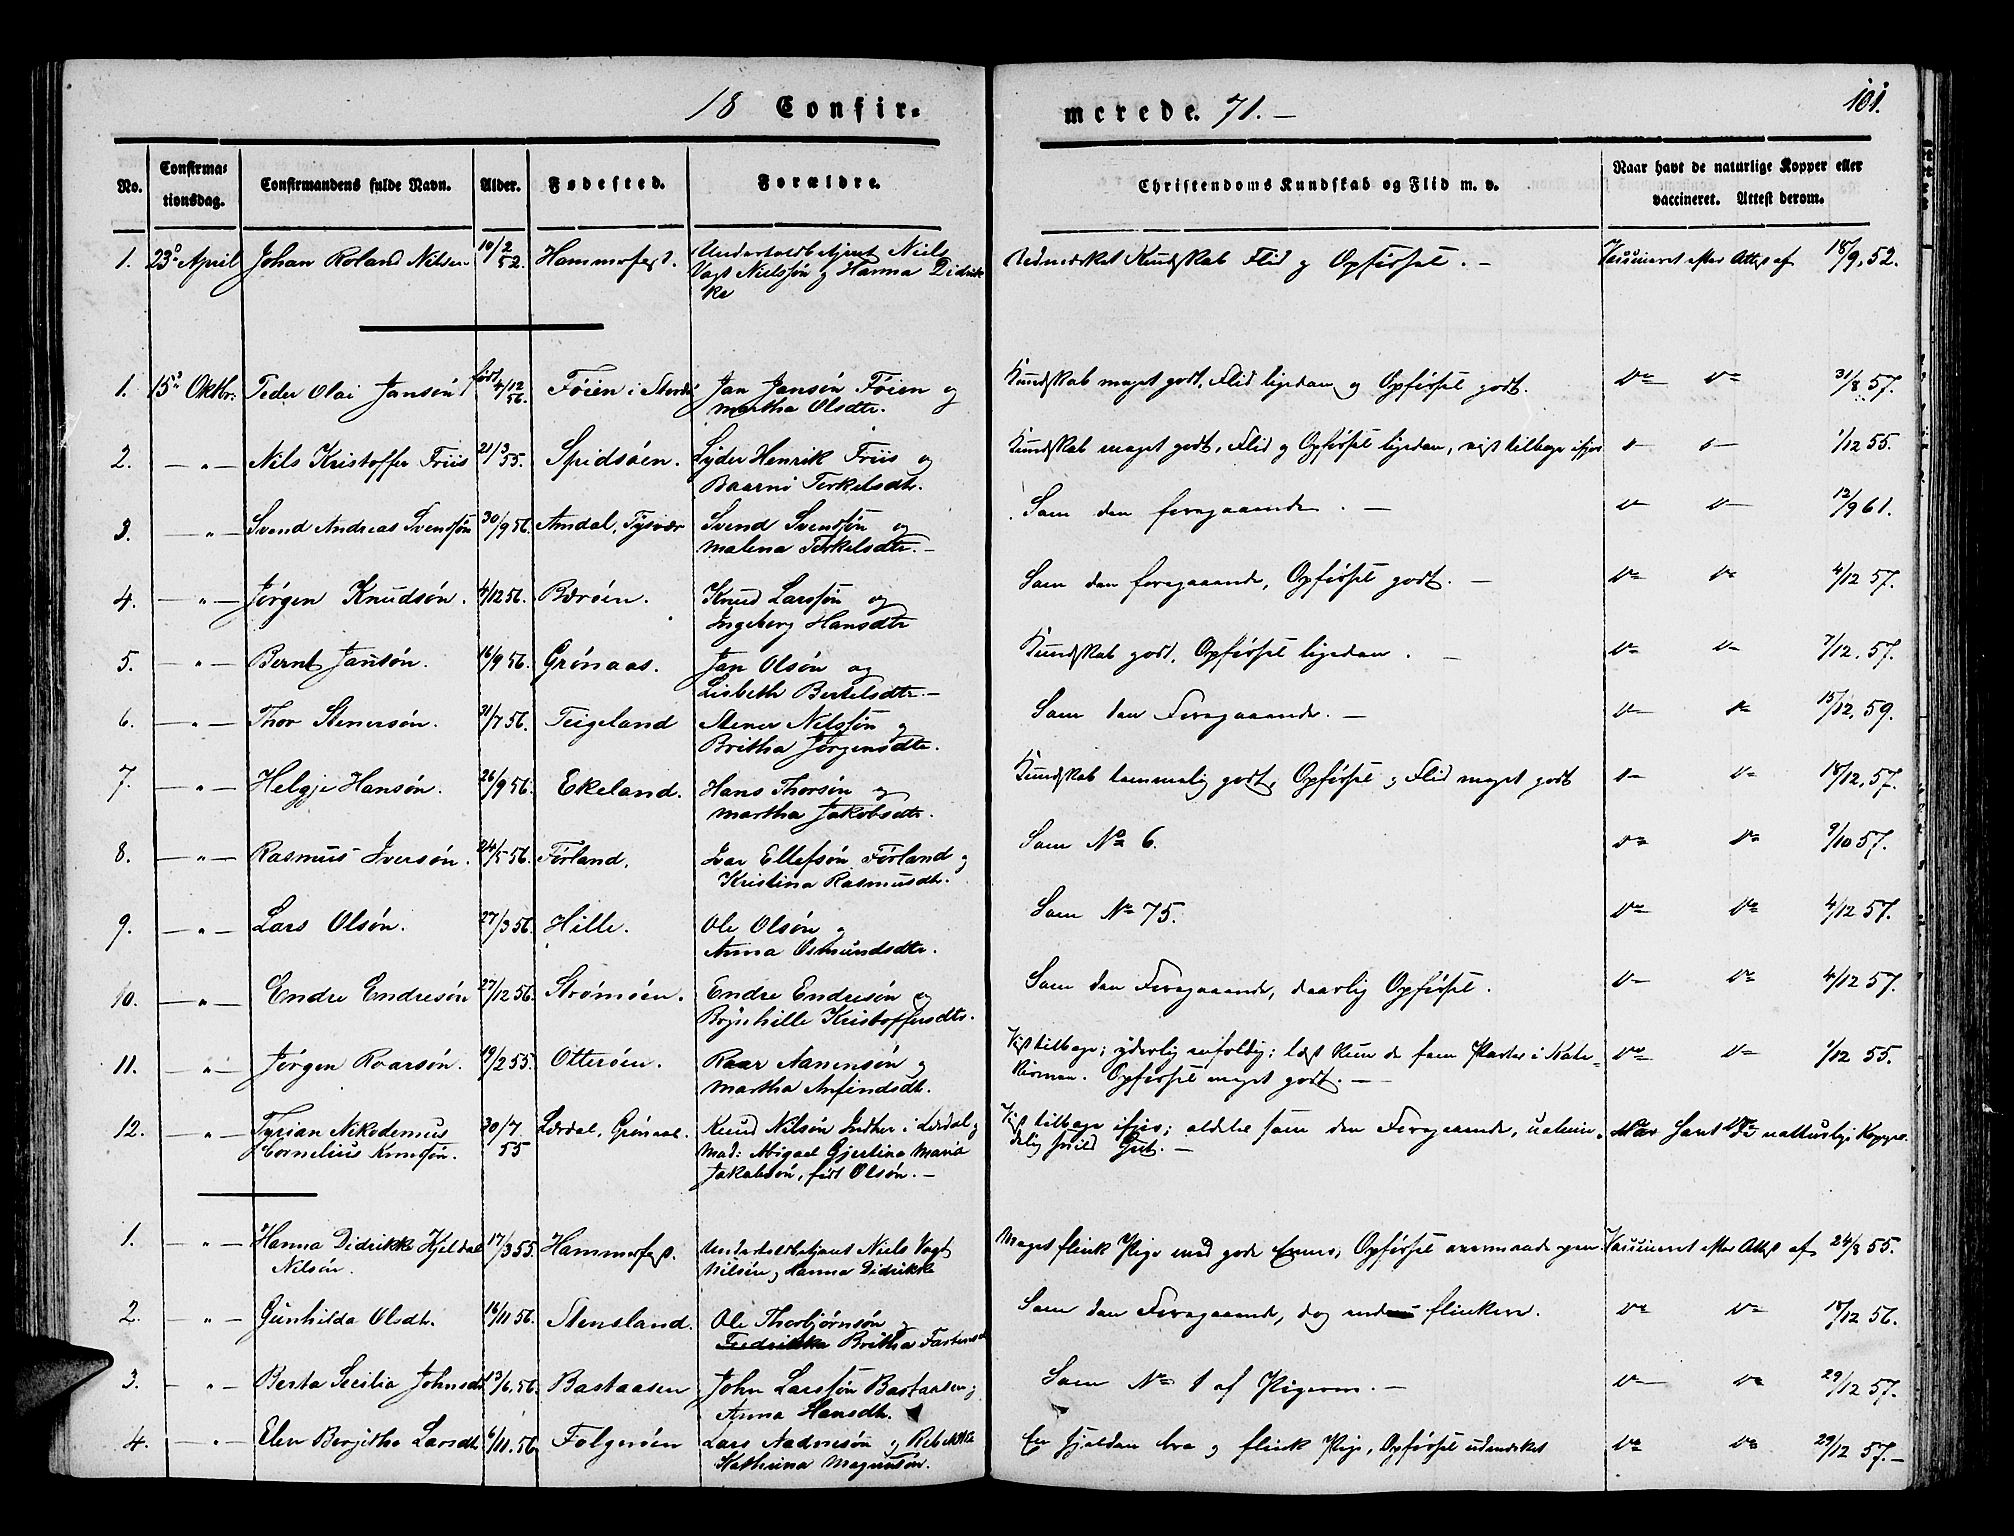 18 Confir-
merede. 71. —
101.
No.
Confirma-
tionsdag.
Confirmandens fulde Navn.
Alder.
Fødested.
Forældre.
Christendoms Kundskab og Flid m. v.
Naar havt de naturlige Kopper eller
vaccineret. Attest derom.
1. 23d April Johan Roland Nilsen 10/2 52. Hammerfest. Underfoldbetjent Niels
Vogt Nielssøn og Hanna Didrik
ke
Udmerket Kundskab Flid og Opførsel. — Vaccineret efter Attest af 18/9, 52.
1. 15d Oktbr: Peder Olai Jansøn født 4/12 56. Føien i Stordø Jan Jansøn Føien og
Martha Olsdtr.
Kundskab meget godt, Flid ligedan og Opførsel godt. 31/8 57.
2. — " — Nils Kristoffer Friis 21/3 55. Spidsøen. Lyder Henrik Friis og
Terkelsdtr.
Kundskab meget godt, Flid og Opførsel ligedan, vist tilbage ifjor 1/12 55.
3. — " — Svend Andreas Svendsøn 30/9 56. Amdal, Tysvær Svend Svendsøn og
Malena Terkelsdtr. —
Som den foregaaende. — 12/9 61.
4. — " — Jørgen Knudsøn. 4/12 56. Børøen. Knud Larssøn og
Ingeborg Hansdtr
Som den foregaaende, Opførsel godt. — 4/12 57.
5. — " — Bernt Jansøn. 16/9 56. Grønaas. Jan Olsøn og
Lisbeth Bertelsdtr. —
Kundskab godt, Opførsel ligedan. — 7/12. 57.
6. — " — Thor Stenersøn. 21/7 56. Teigeland Stener Nilssøn og
Britha Jørgensdtr.
Som den Foregaaende. — 15/12, 59.
7. — " — Helgje Hansøn. 26/9 56. Ekeland. Hans Thorsøn og
Martha Jakobsdtr.
Kundskab temmelig godt, Opførsel og Flid meget godt 18/12, 57.
8. — " — Rasmus Iversøn. 24/5 56. Førland. Ivar Ellefsøn Førland og
Kristina Rasmusdtr.
Som No 6. 9/10 57.
9. — " — Lars Olsøn. 27/3 56. Hille. Ole Olsøn og
Anna Osmundsdtr.
Som No 75. 4/12 57.
10. — " — Endre Endresøn 27/12 56. Strømøen. Endre Endresøn og
Brynhille Kristoffersdtr.
Som den Foregaaende, daarlig Opførsel. 4/12 57.
11. — " — Jørgen Roarsøn. 19/2 55. Otterøen. Roar Aanensøn og
Martha Anfindsdtr.
Vist tilbage; yderlig enfoldig; læst kun de fem Parter i Kate-
kismen. Opførsel meget godt. — 1/12 55.
12. — " — Tyrian Nikodemus
Cornelius Knudsøn. 20/7 55 Lærdal, Grønaas. Knud Nilsøn Indher i Lærdal og
Mad: Abigael Gjertina Maria
Jakobsøn, født Olsøn. —
Vist tilbage ifjor; aldeles som den Foregaaende, ualmin-
delig Gut. — Har havt de natturlige Kopper.
1. — " — Hanna Didrikke Kjeldal
Nilsøn. 17/3 55. Hammerfest. Underfoldbetjent Niels Vogt
Nilsen og Hanna Didrikke
Meget flink Pige med gode Evner, Opførsel Vaccineret efter Attest af 24/8 55.
2. — " — Gunhilda Olsdtr. 16/11 56. Stensland. Ole Thorbjørnsøn og
Britha
Som den Foregaaende, dog endnu flinkere. 18/12 56.
3. — " — Berta Secilia Johnsdtr 13/6. 56. Bastaasen John Larssøn Bastaasen og
Anna Hansdtr.
Som No 1 af Pigerne. — 29/12 57.
4. — " — Elen Berjitha Larsdtr 6/11. 56 Folgerøen Lars Aadnesøn og Rebekka
Kathrina Magnusøn.
En sjelden bra og flink Pige, Opførsel udmerket 29/12 57. —